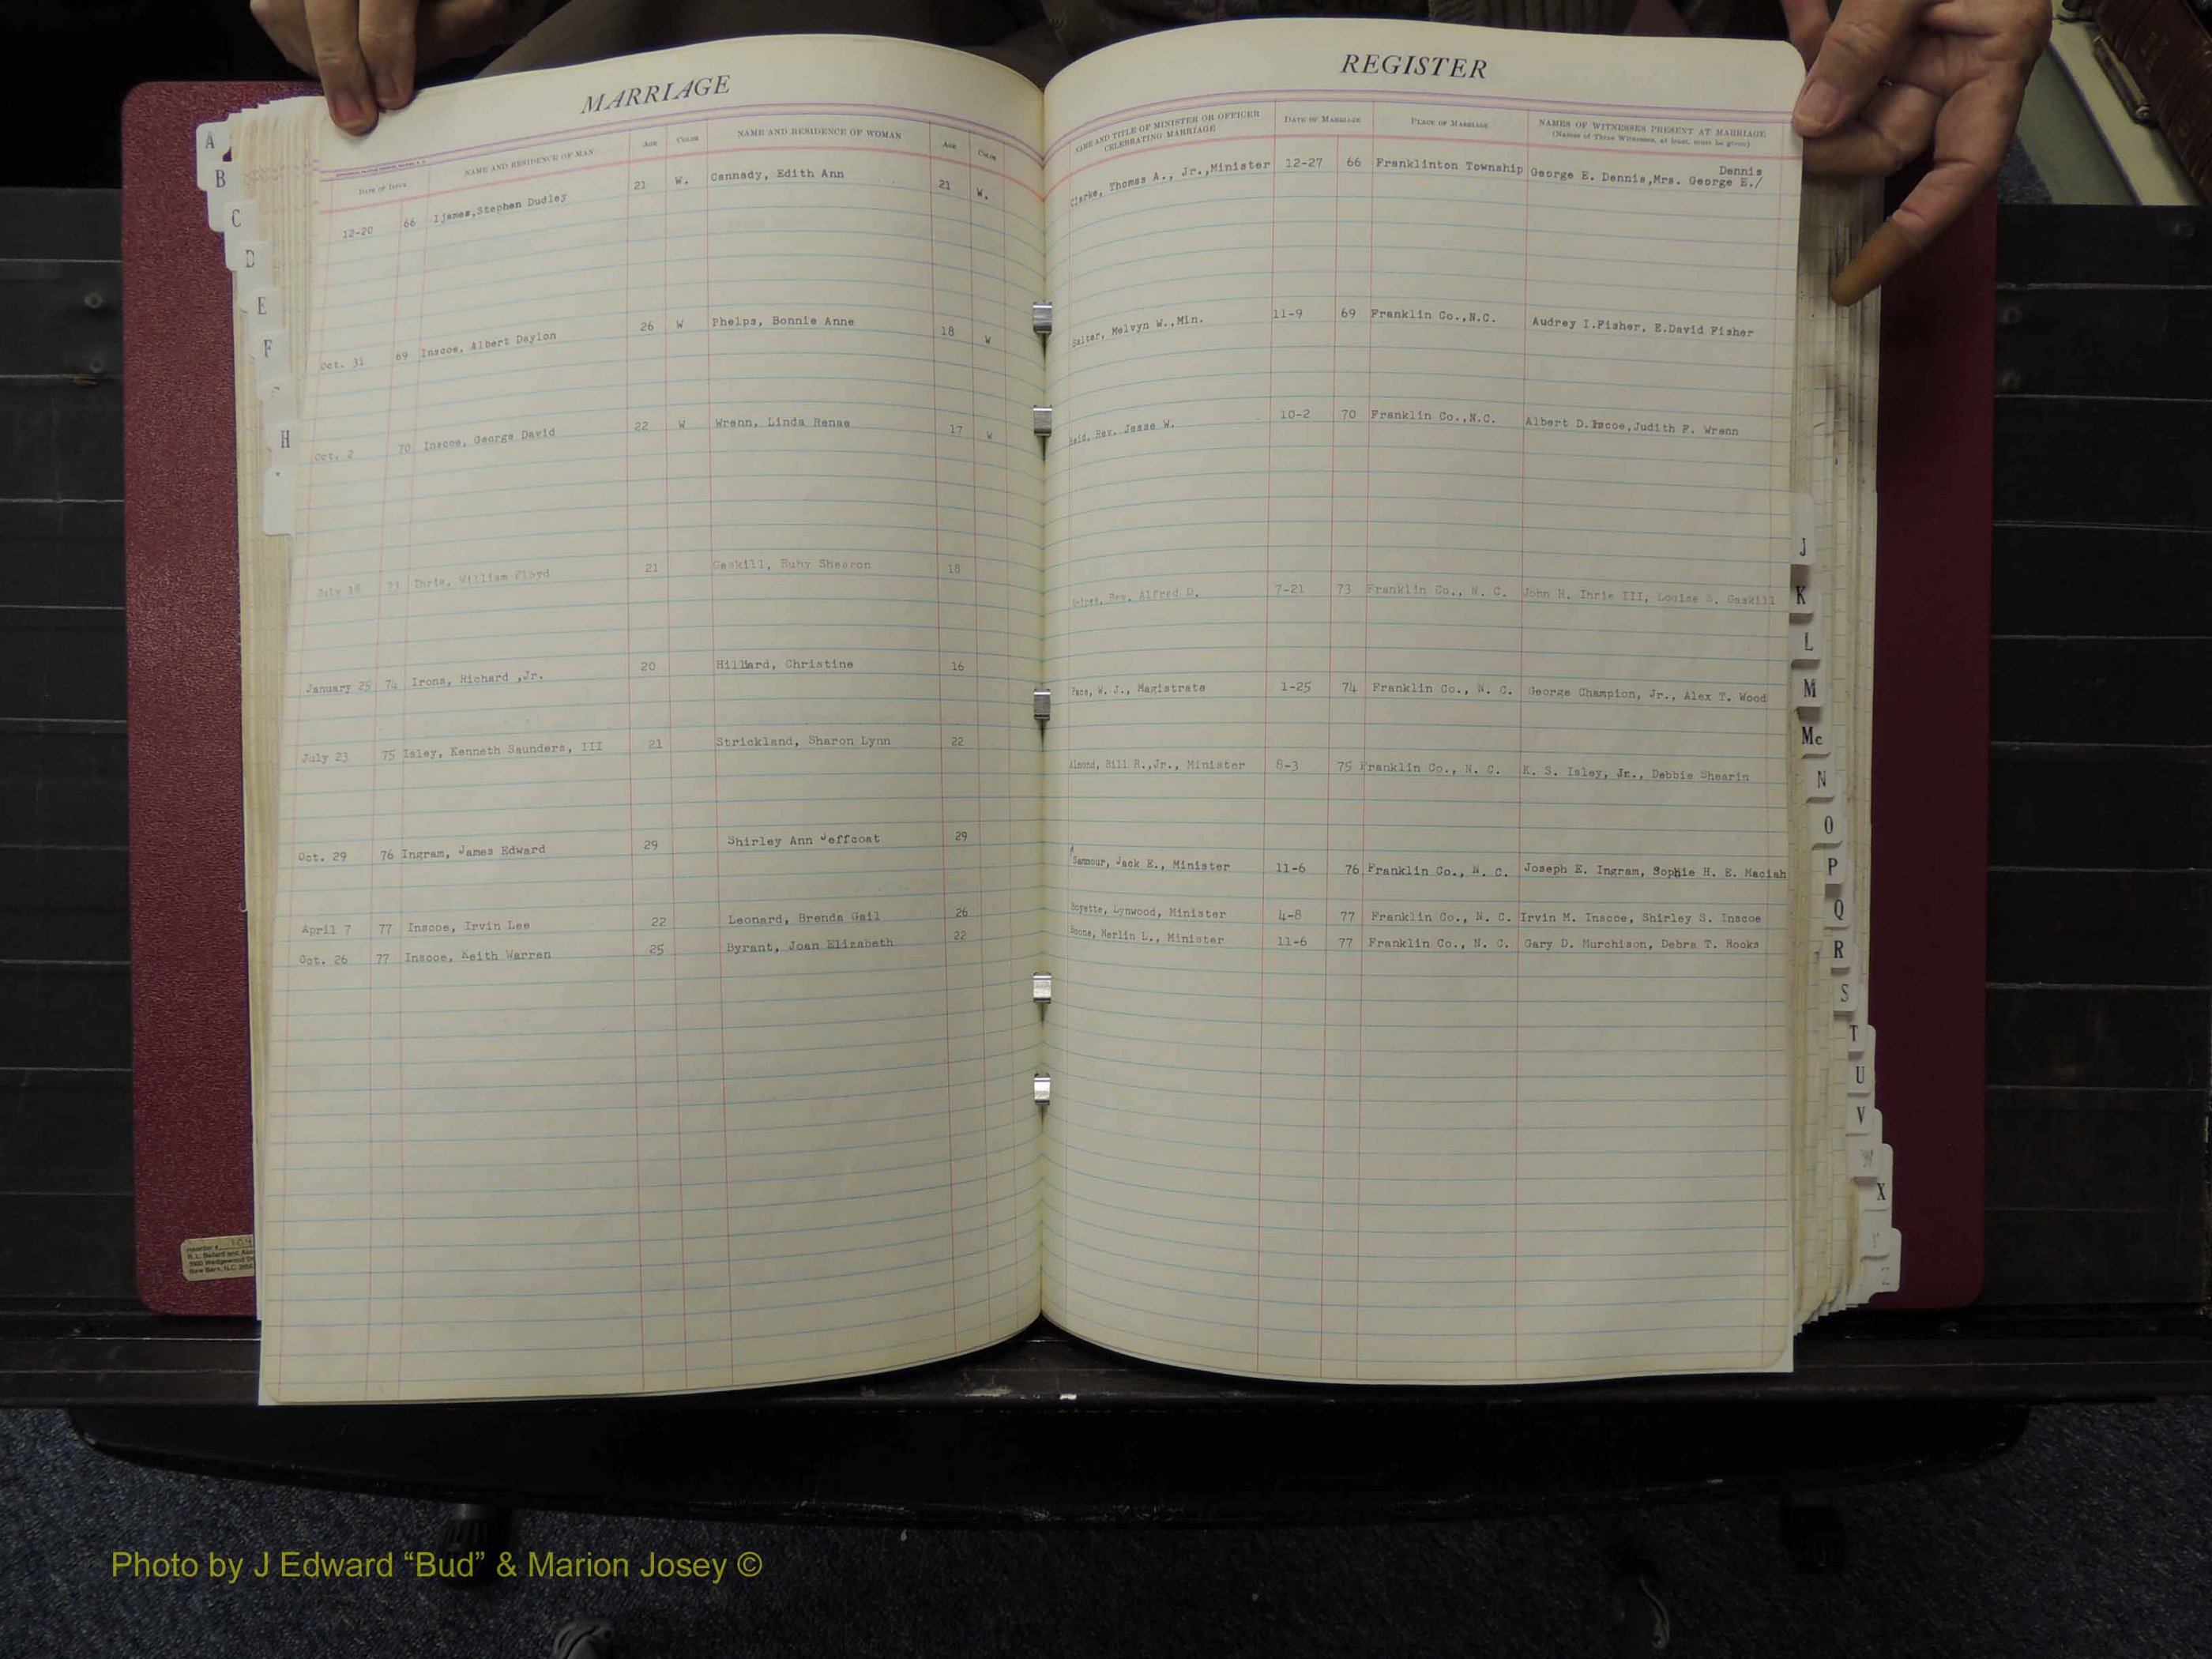 MARRIAGE
DATE OF ISSUE NAME AND RESIDENCE OF MAN AGE COLOR NAME AND RESIDENCE OF WOMAN AGE COLOR
12-20 66 Ijames,Stephen Dudley 21 W. Cannady, Edith Ann 21 W.
Oct. 31 69 Inscoe, Albert Daylon 26 W Phelps, Bonnie Anne 18 W
Oct. 2 70 Inscoe, George David 22 W Wrenn, Linda Renae 17 W
July 18 73 Ihrie, William Floyd 21 Gaskill, Ruby Shearon 18
January 25 74 Irons, Richard ,Jr. 20 Hilliard, Christine 16
July 23 75 Isley, Kenneth Saunders, III 21 Strickland, Sharon Lynn 22
Oct. 29 76 Ingram, James Edward 29 Shirley Ann Jeffcoat 29
April 7 77 Inscoe, Irvin Lee 22 Leonard, Brenda Gail 26
Oct. 26 77 Inscoe, Keith Warren 25 Byrant, Joan Elizabeth 22
REGISTER
NAME AND TITLE OF MINISTER OR OFFICER CELEBRATING MARRIAGE DATE OF MARRIAGE PLACE OF MARRIAGE NAMES OF WITNESSES PRESENT AT MARRIAGE
(Names of Three Witnesses, at least, must be given)
Dennis
Clarke, Thomas A., Jr.,Minister 12-27 66 Franklinton Township George E. Dennis,Mrs. George E./
Salter, Melvyn W.,Min. 11-9 69 Franklin Co.,N.C. Audrey I.Fisher, E.David Fisher
Reid, Rev. Jesse W. 10-2 70 Franklin Co.,N.C. Albert D. Inscoe,Judith F. Wrenn
Rev. Alfred D. 7-21 73 Franklin Co., N. C. John H. Ihrie III, Louise S. Gaskill
Pace, W. J., Magistrate 1-25 74 Franklin Co., N. C. George Champion, Jr., Alex T. Wood
Almond, Bill R.,Jr., Minister 8-3 75 Franklin Co., N. C. K. S. Isley, Jr., Debbie Shearin
Jack E., Minister 11-6 76 Franklin Co., N. C. Joseph E. Ingram, Sophie H. E. Maciah
Boyette, Lynwood, Minister 4-8 77 Franklin Co., N. C. Irvin M. Inscoe, Shirley S. Inscoe
Boone, Merlin L., Minister 11-6 77 Franklin Co., N. C. Gary D. Murchison, Debra T. Hooks
A
B
C
D
E
F
H
J
K
L
M
Mc
N
O
P
Q
R
S
T
U
V
W
X
Y
Z
New Bern, N.C.
Photo by J Edward “Bud” & Marion Josey ©